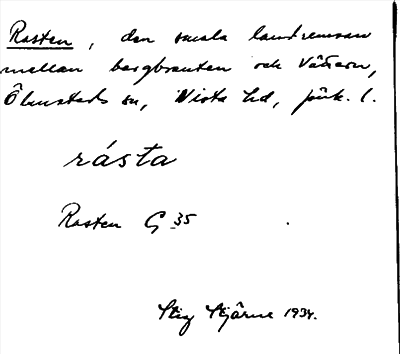 Rasten, den smala landremsan
mellan bergbranten och Vättern,
Ölmstads sn, Vista hd, jönk. l.
rásta
Rasten G 35
Stig Stjärne 1934.